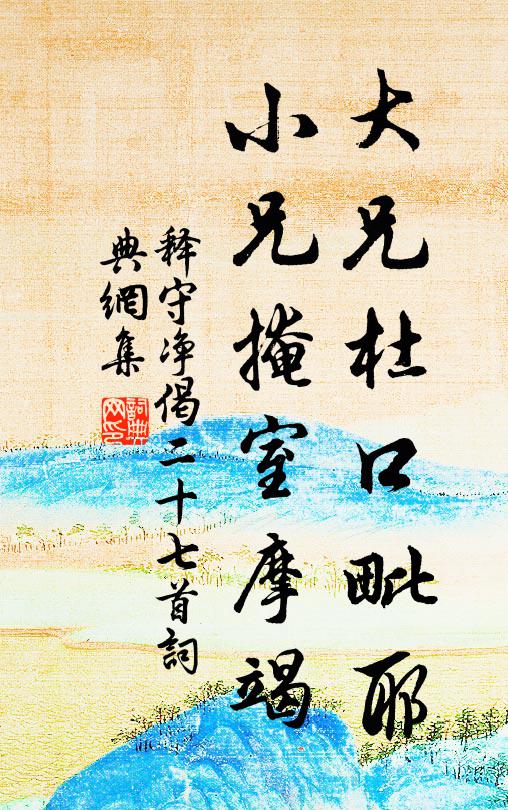 大兄杜口毗耶
小兄掩室摩竭
释守净偈二十七首詞
典網集
詞典網印